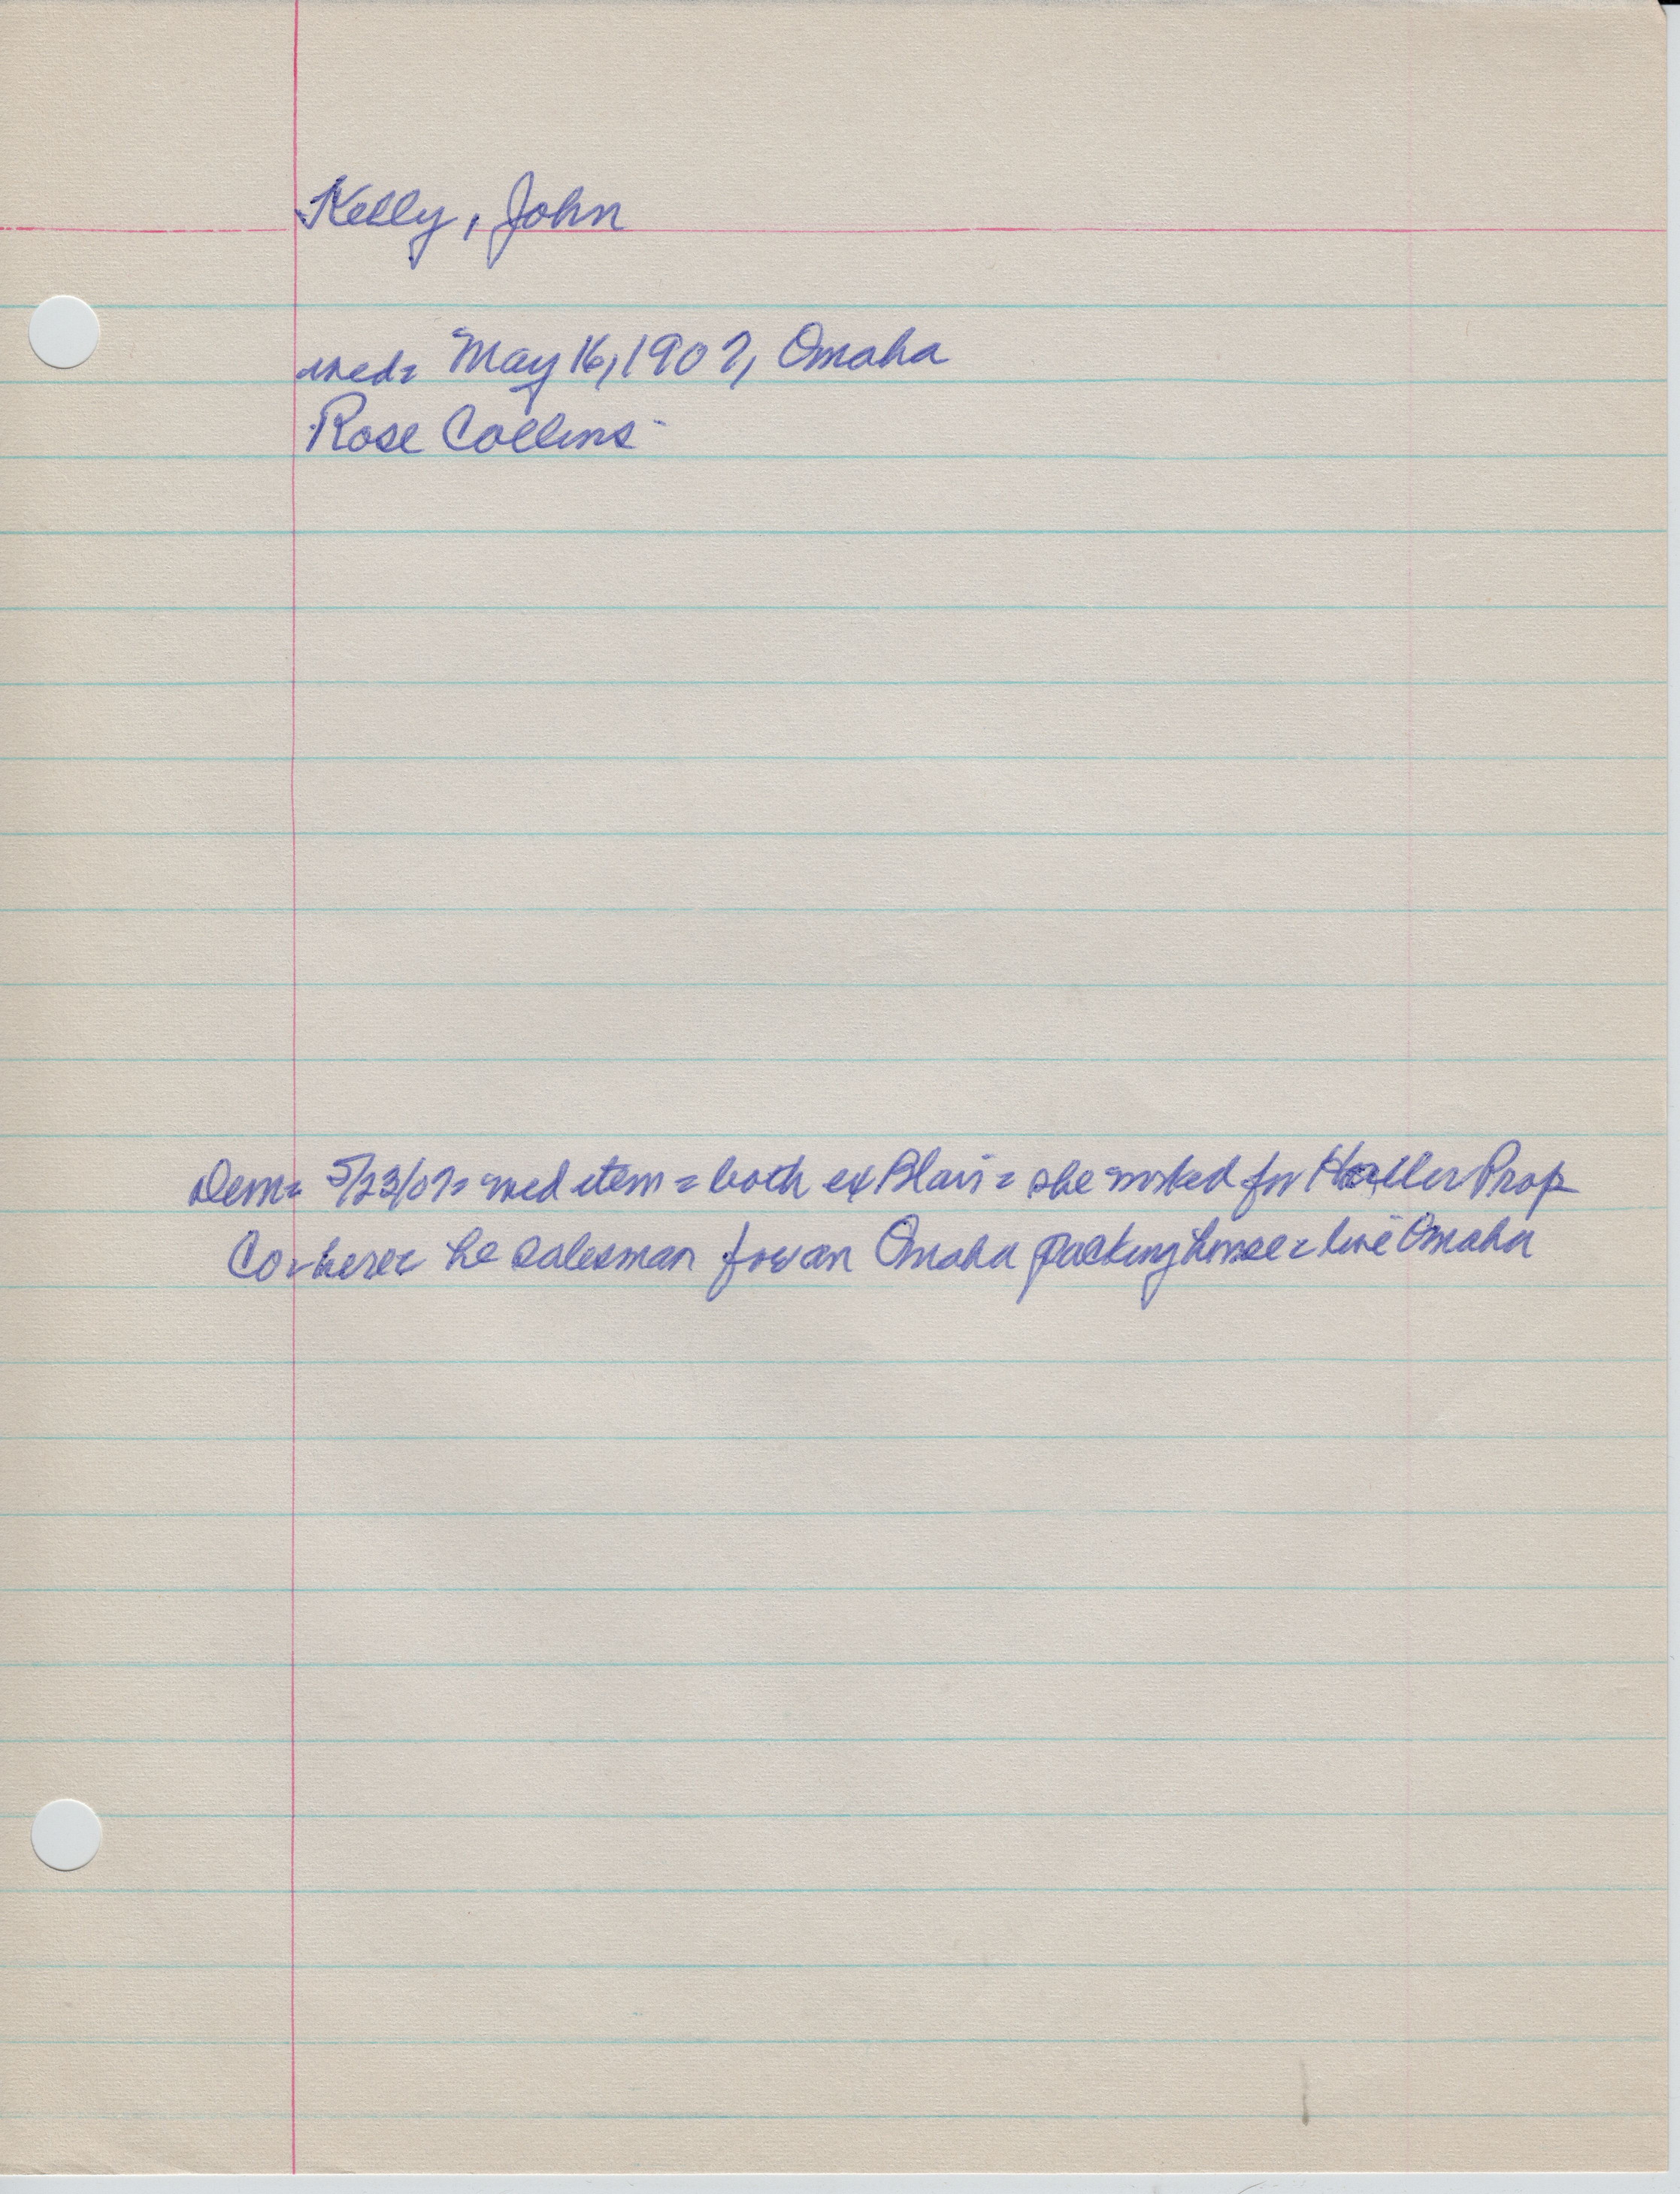 Kelly, John
wed= May 16, 1907, Omaha
Rose Collins
Dem= 5/23/07= wed item = both ex Blair = she worked for Haller Prop
Co. here= he salesman for an Omaha packing house = live Omaha